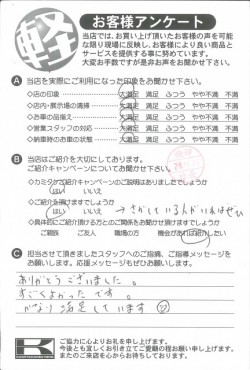 軽
お客様アンケート
当店では、お買い上げ頂いたお客様の声を可能
な限り現場に反映し、お客様により良い商品と
サービスを提供する事に努めています。
大変お手数ですが是非お声をお聞かせ下さい。
A 当店を実際にご利用になった印象をお聞かせ下さい。
◇店の印象 大満足 満足 ふつう やや不満 不満
◇店内・展示場の清掃 大満足 満足 ふつう やや不満 不満
◇お車の品揃え 大満足 満足 ふつう やや不満 不満
◇営業スタッフの対応 大満足 満足 ふつう やや不満 不満
◇納車時のお車の状態 大満足 満足 ふつう やや不満 不満
B 当店はご紹介を大切にしております。
ご紹介キャンペーンについてお聞かせ下さい。
◇カミタケご紹介キャンペーンのご説明はありましたでしょうか
はい いいえ
◇ご紹介を頂けますでしょうか
はい いいえ →さがしている人がいればぜひ
◇具体的にご紹介頂ける方とのご関係をお聞かせ頂けますでしょうか
ご親戚 ご友人 職場の方 機会があれば紹介したい
C 担当させて頂きましたスタッフへのご指摘、ご指導メッセージを
お願いします。応援メッセージもぜひお願いします。
ありがとうございました。
すごくよかったです。
かなり満足しています
K
ご協力に心よりお礼を申し上げます。
今後とも宜しくお引き立てご愛顧の程お願い申し上げます。
またのご来店を心からお待ちしております。